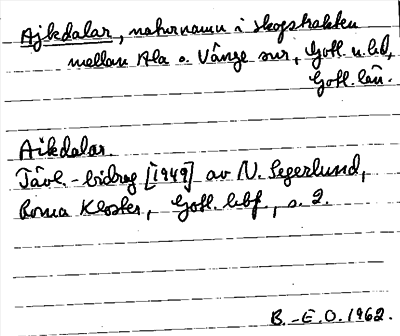 Ajkedalar, naturnamn i skogstrakten
mellan Ala o. Vänge snr, Gotl. n. hd,
Gotl. län.
Aikdalar.
Tävl.-bidrag [1949] av N. Segerlund,
Roma Kloster, Gotl. hbf., s. 2.
B.-E.O. 1962.